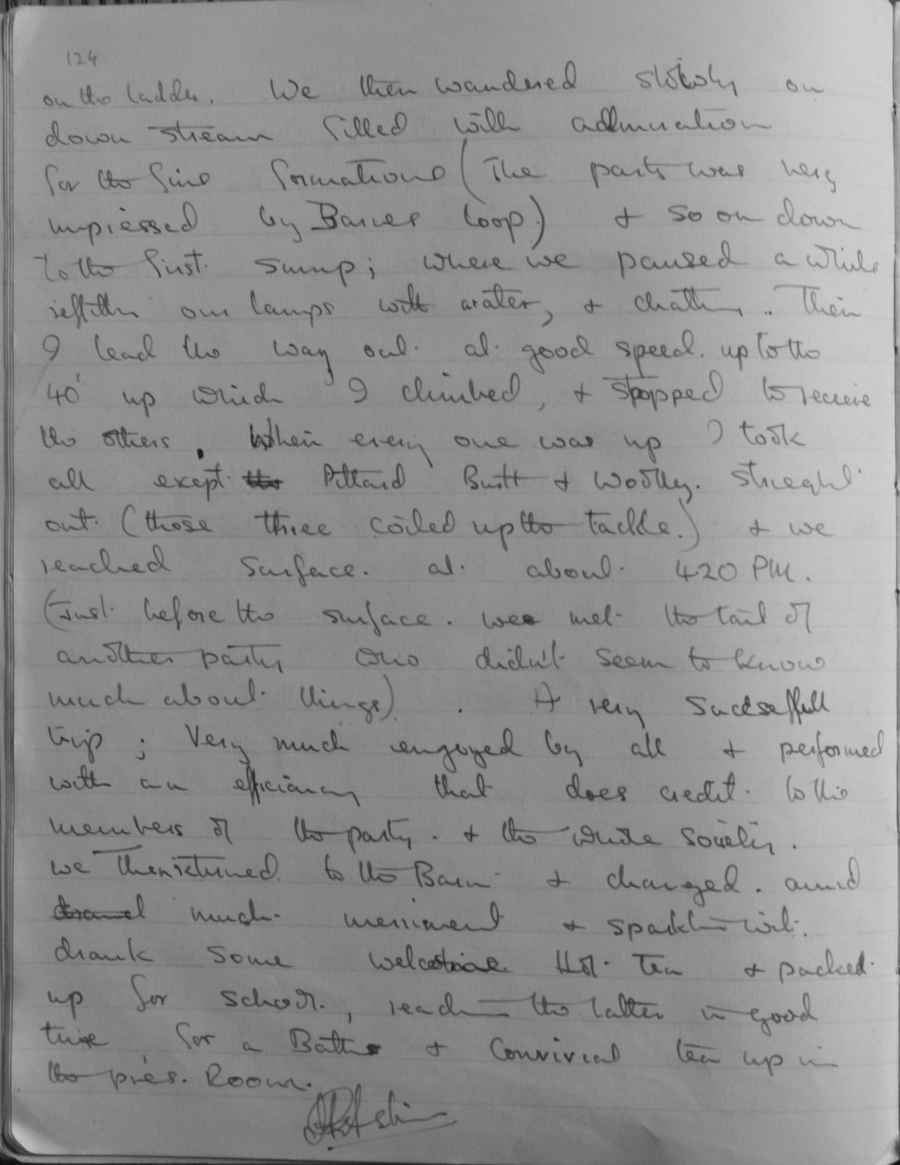 124
on the ladder. We then wandered slowly on
down stream filled with admiration
for the fine formations (The party was very
impressed by Barnes loop) & so on down
to the first sump; where we paused a while
our lamps with water, & chatting. Then
I lead the way out at good speed. up to the
40' up which I climbed, & stopped to receive
the others. When every one was up I took
all exept the Pittard Butt & Woolley. streight
out (those three coiled up the tackle.) & we
reached surface. at about 4.20 PM.
(Just before the surface. we met the tail of
another party who didn't seem to know
much about things). A very sucsesffull
trip; Very much engoyed by all & performed
with an efficiancy that does credit to the
members of the party. & the whole society.
we then returned to the Barn & changed. amid
much merriment & sparkling wit.
drank some welcome Hot Tea & packed
up for school., reaching the latter in good
time for a Bath & convivial tea up in
the pres. Room.